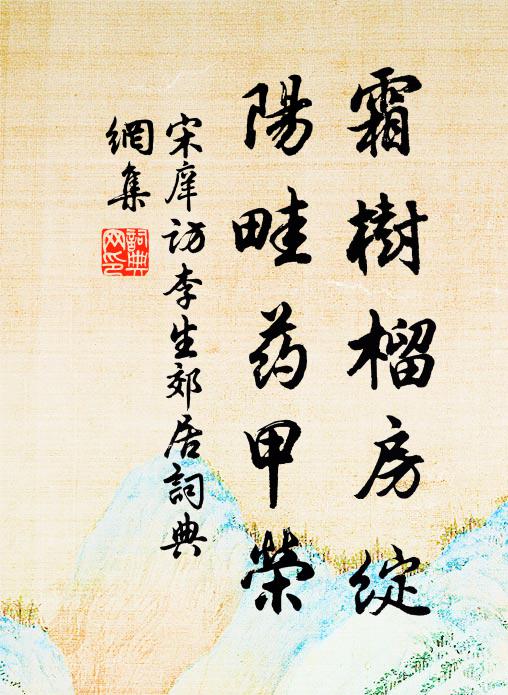 霜樹榴房綻
陽畦药甲榮
宋庠訪李生郊居詞典
網集
詞典
网印